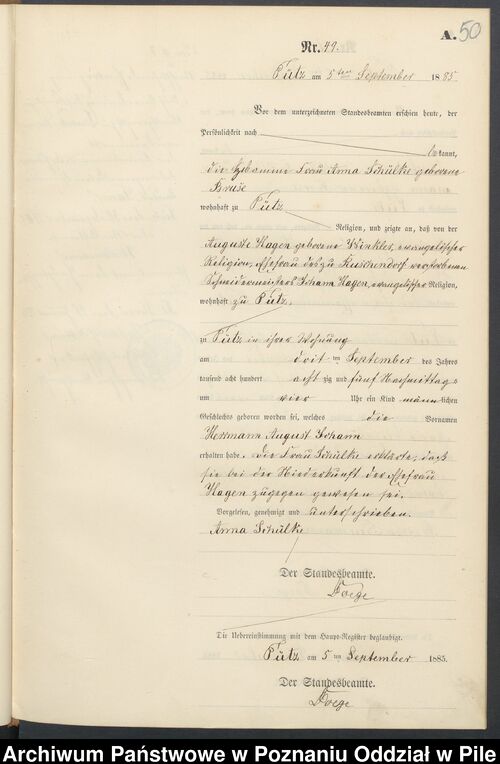 A. 50
Nr. 49.
Tütz am 5ten September 1885.
Vor dem unterzeichneten Standesbeamten erschien heute, der
Persönlichkeit nach
bekannt,
die Hebamme Frau Anna Schülke geborene
Bruse
wohnhaft zu Tütz
Religion, und zeigte an, daß von der
Auguste Hagen geborene Winkler, evangelischer
Religion, Ehefrau des zu Ruschendorf verstorbenen
Schneidermeisters Johann Hagen, evangelischer Religion,
wohnhaft zu Tütz,
zu Tütz in ihrer Wohnung
am drit ten September des Jahres
tausend acht hundert acht zig und fünf Nachmittags
um vier Uhr ein Kind männlichen
Geschlechts geboren worden sei, welches die Vornamen
Hermann August Johann
erhalten habe. Die Frau Schülke erklärte, daß
sie bei der Niederkunft der Ehefrau
Hagen zugegen gewesen sei.
Vorgelesen, genehmigt und unterschrieben.
Anna Schülke
Der Standesbeamte.
Foege
Die Uebereinstimmung mit dem Haupt-Register beglaubigt.
Tütz am 5 ten September 1885.
Der Standesbeamte.
Foege
Archiwum Państwowe w Poznaniu Oddział w Pile